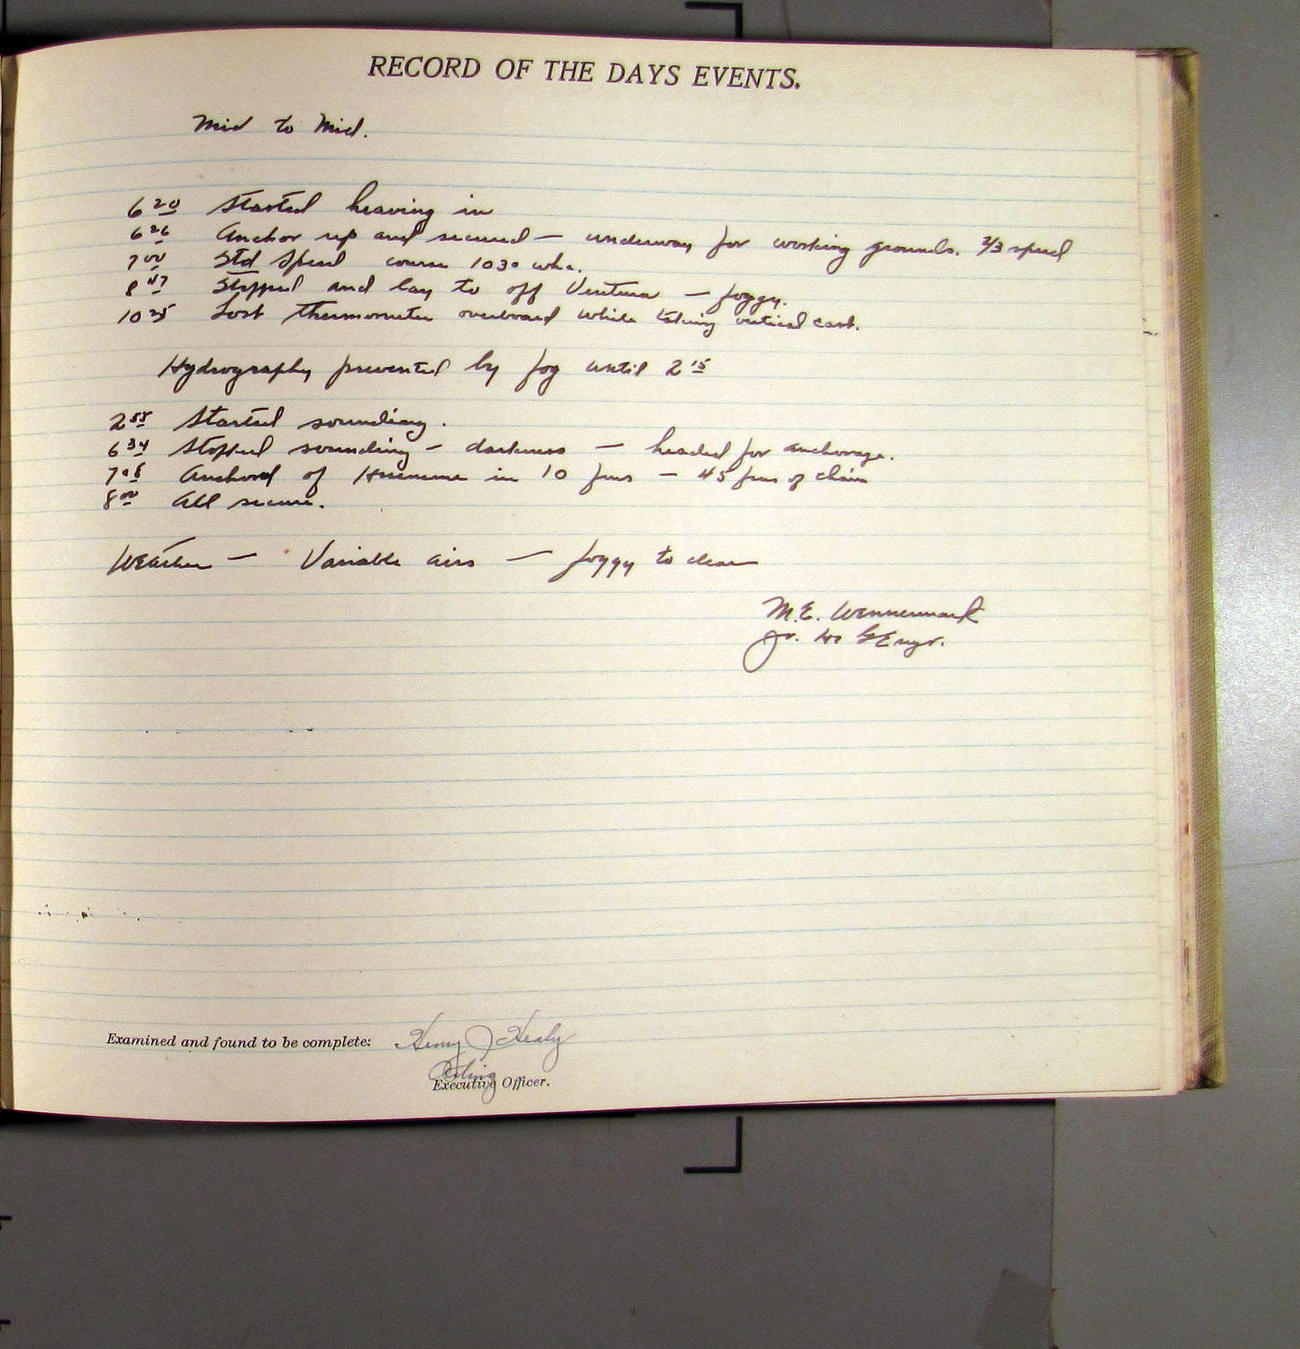 RECORD OF THE DAYS EVENTS.
Mid to Mid.
6 20 Started heaving in
6 26 Anchor up and secured — underway for working grounds. 2/3 speed
7 00 Std speed course 103°
8 47 Stopped and lay to off Ventura — foggy.
10 25 Lost thermometer overboard while taking vertical cast.
Hydrography prevented by fog until 2 15
2 55 Started sounding.
6 34 Stopped sounding — darkness — headed for anchorage.
7 08 Anchord of Hueneme in 10 fms — 45 fms of chain
8 00 All secure.
Weather — Variable airs — foggy to clear
M.E. Wennermark
Jr. H. & G Engr.
Examined and found to be complete: Henry J Healy
Acting
Executive Officer.